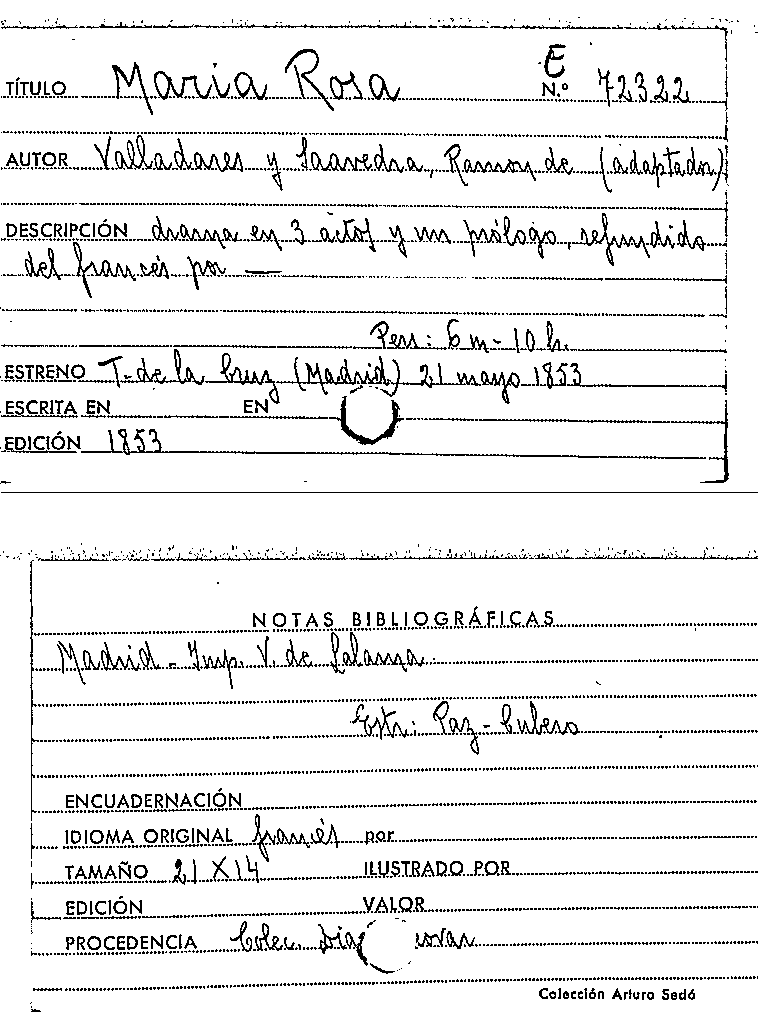 TÍTULO Maria Rosa E N.º 72322
AUTOR Valladares y Saavedra, Ramon de (adaptador)
DESCRIPCIÓN drama en 3 actos y un prólogo, refundido
del francés por —
Pers: 6 m - 10 h.
ESTRENO T. de la Cruz (Madrid) 21 mayo 1853
ESCRITA EN EN
EDICIÓN 1853
NOTAS BIBLIOGRÁFICAS
Madrid - Imp. V. de Lalama
Estr: Paz - Cubero
ENCUADERNACIÓN
IDIOMA ORIGINAL francés por
TAMAÑO 21 X 14 ILUSTRADO POR
EDICIÓN VALOR
PROCEDENCIA Colec. Díaz
Colección Arturo Sedó